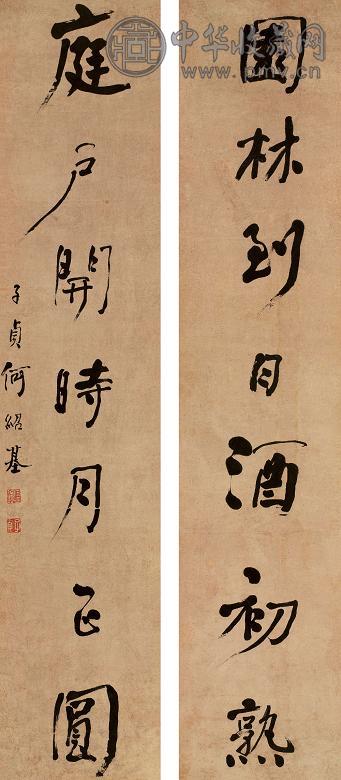 園林到日酒初熟
庭戶開時月正圓
子貞何紹基
中华收藏网
www.pmv.cn